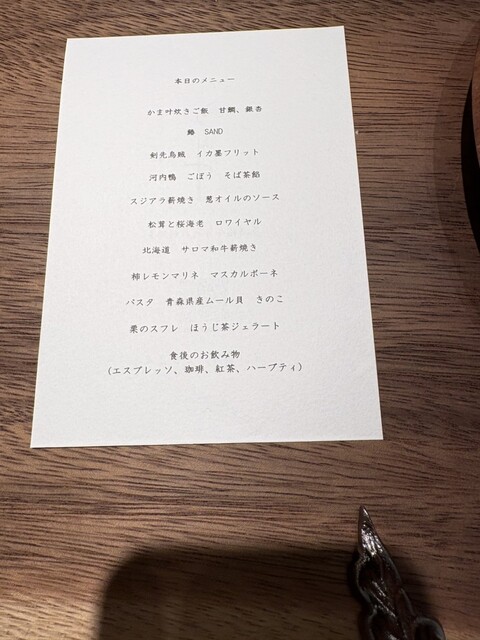 本日のメニュー
かま叶炊きご飯　甘鯛、銀杏
SAND
剣先烏賊　イカ墨フリット
河内鴨　ごぼう　そば茶餡
スジアラ薪焼き　葱オイルのソース
松茸と桜海老　ロワイヤル
北海道　サロマ和牛薪焼き
柿レモンマリネ　マスカルポーネ
パスタ　青森県産ムール貝　きのこ
栗のスフレ　ほうじ茶ジェラート
食後のお飲み物
(エスプレッソ、珈琲、紅茶、ハーブティ)